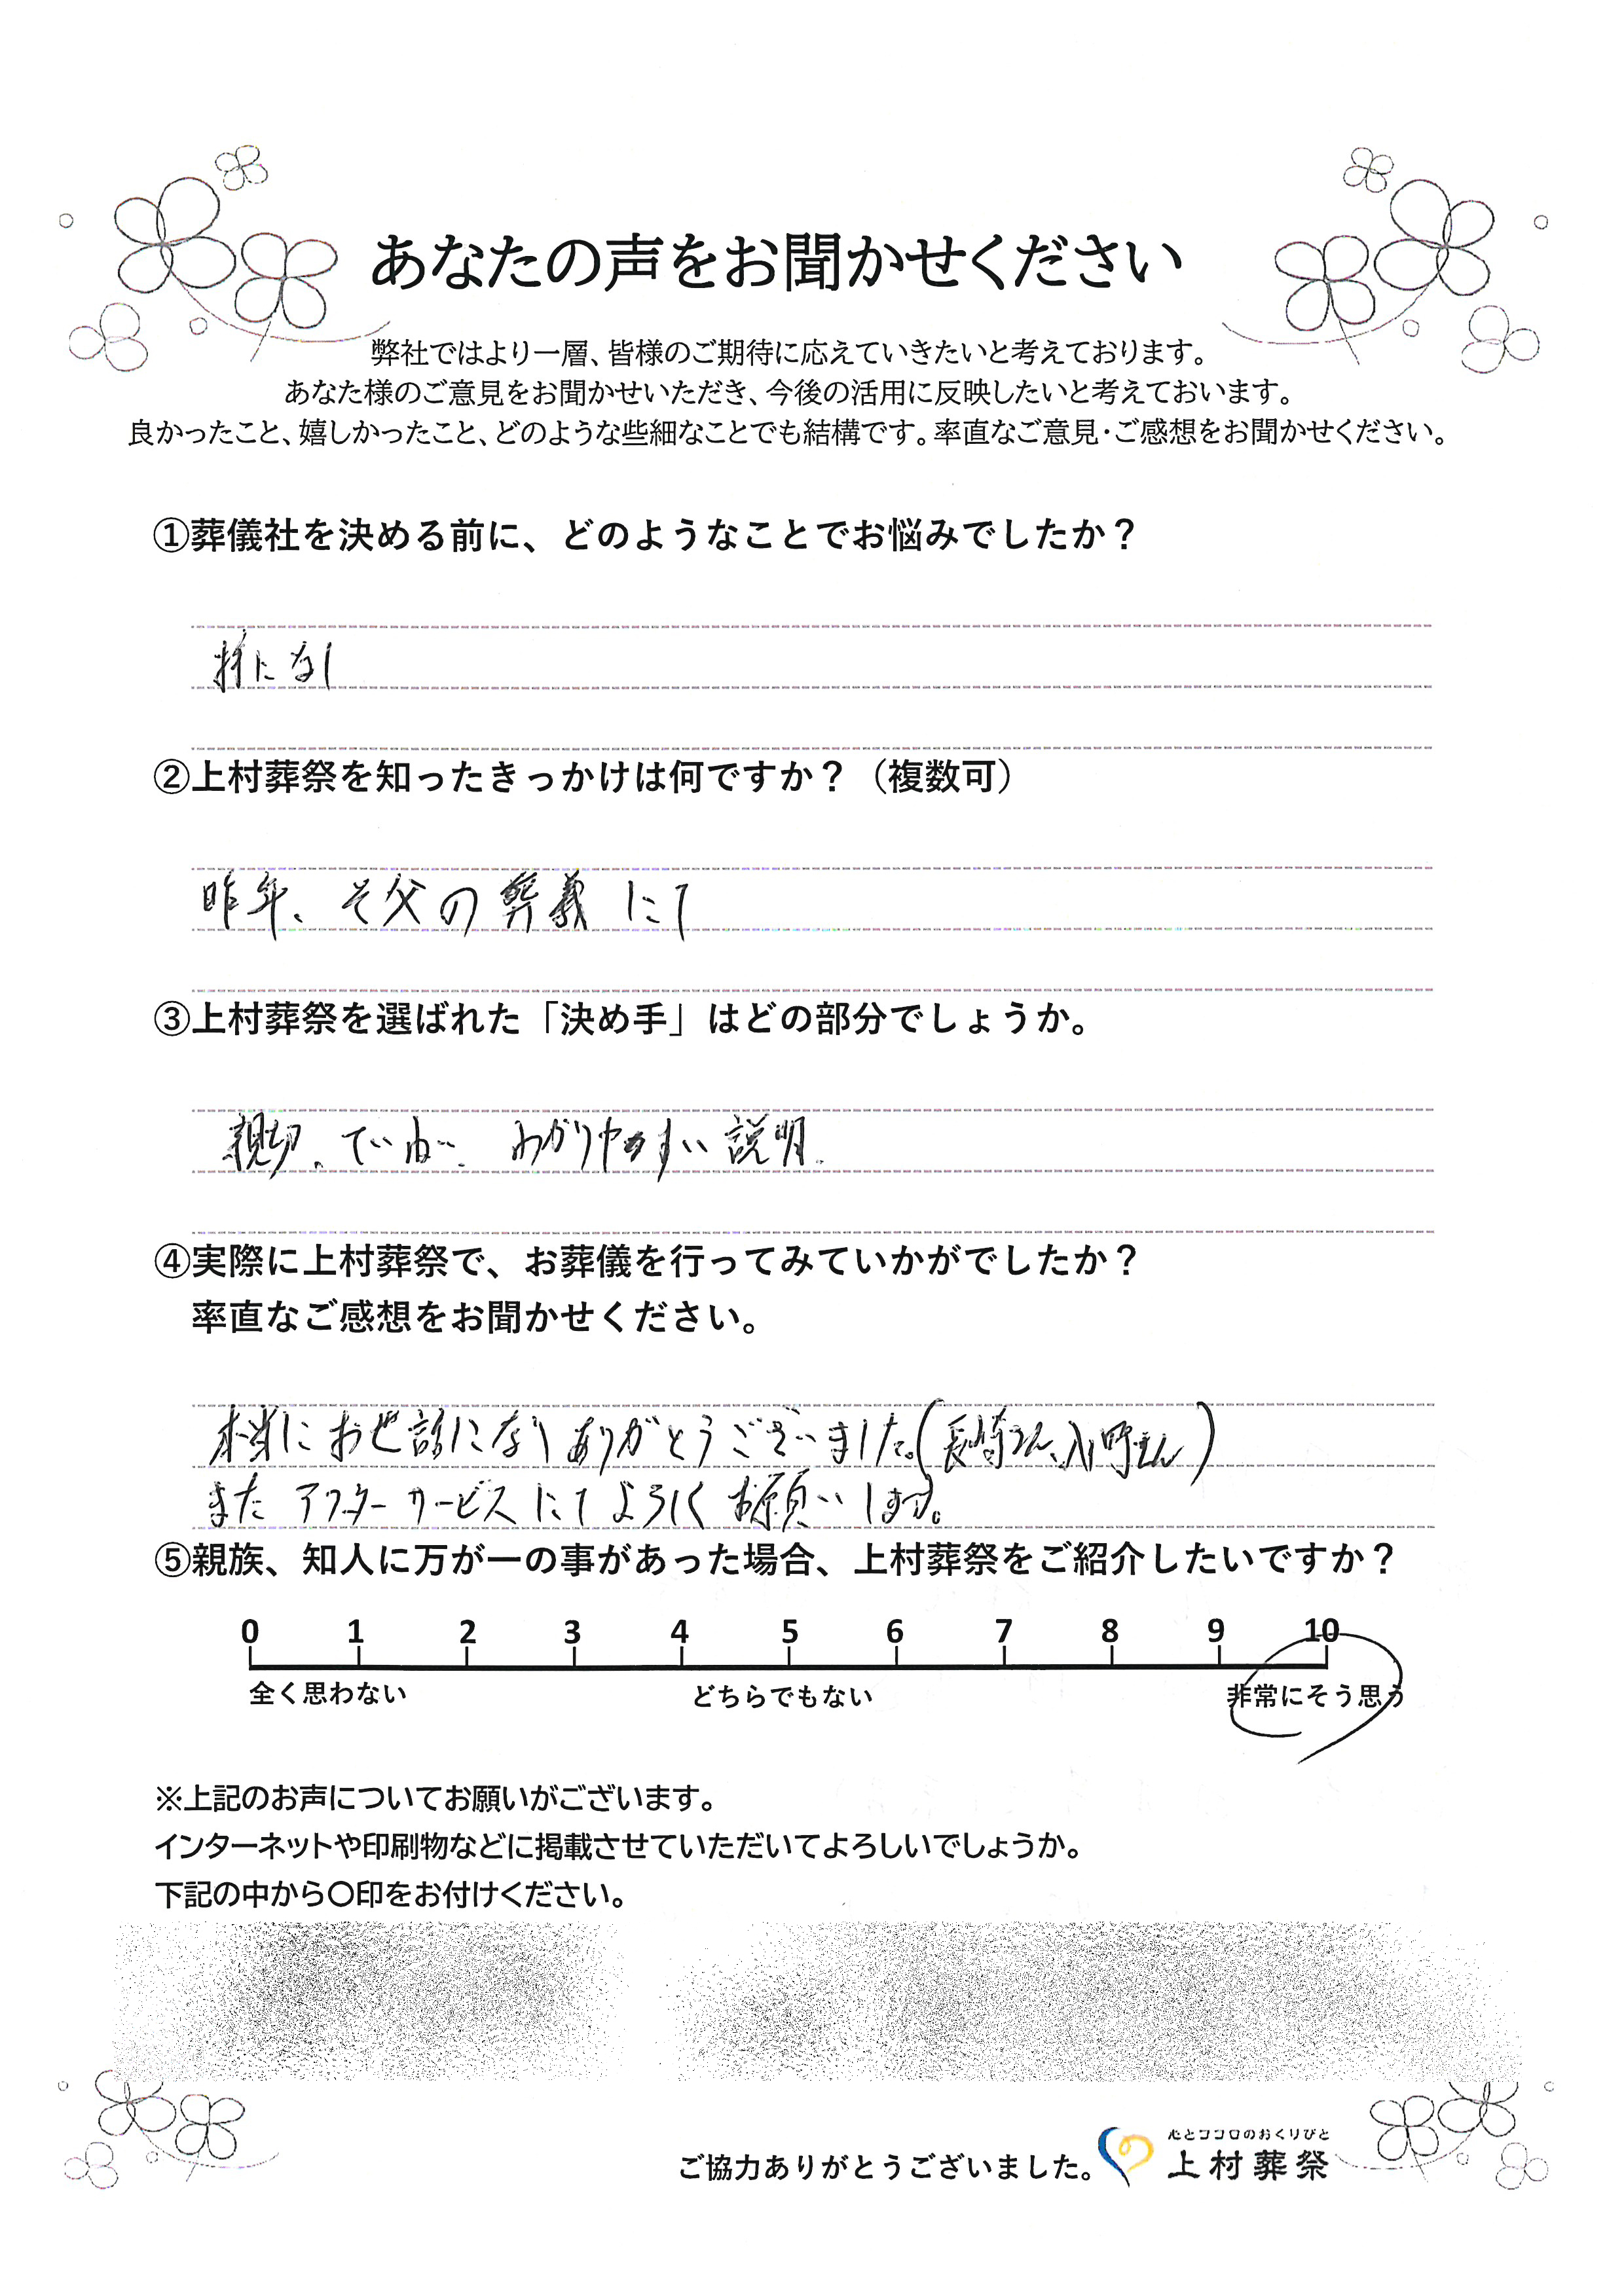 あなたの声をお聞かせください
弊社ではより一層、皆様のご期待に応えていきたいと考えております。
あなた様のご意見をお聞かせいただき、今後の活用に反映したいと考えておいます。
良かったこと、嬉しかったこと、どのような些細なことでも結構です。率直なご意見・ご感想をお聞かせください。
①葬儀社を決める前に、どのようなことでお悩みでしたか？
特になし
②上村葬祭を知ったきっかけは何ですか？（複数可）
昨年、そ父の葬義にて
③上村葬祭を選ばれた「決め手」はどの部分でしょうか。
親切、ていねい、わかりやすい説明、
④実際に上村葬祭で、お葬儀を行ってみていかがでしたか？
率直なご感想をお聞かせください。
本当にお世話になりありがとうございました。（長崎さん、入野さん）
また アフターサービスにてよろしくお願いします。
⑤親族、知人に万が一の事があった場合、上村葬祭をご紹介したいですか？
0 1 2 3 4 5 6 7 8 9 10
全く思わない どちらでもない 非常にそう思う
※上記のお声についてお願いがございます。
インターネットや印刷物などに掲載させていただいてよろしいでしょうか。
下記の中から〇印をお付けください。
心とココロのおくりびと
ご協力ありがとうございました。 上村葬祭